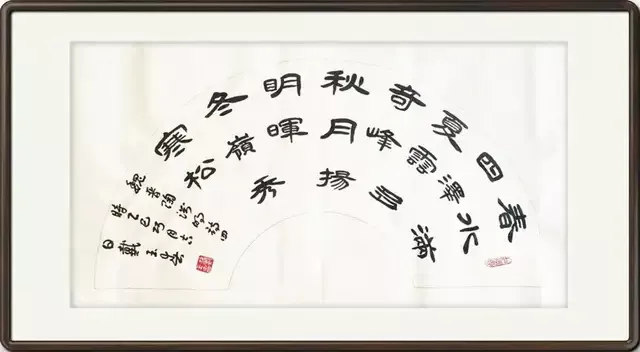 春水滿
四澤
夏雲多
奇峰
秋月揚
明暉
冬嶺秀
寒松
魏晉陶淵明詩四
時乙巳巧月六
日戴